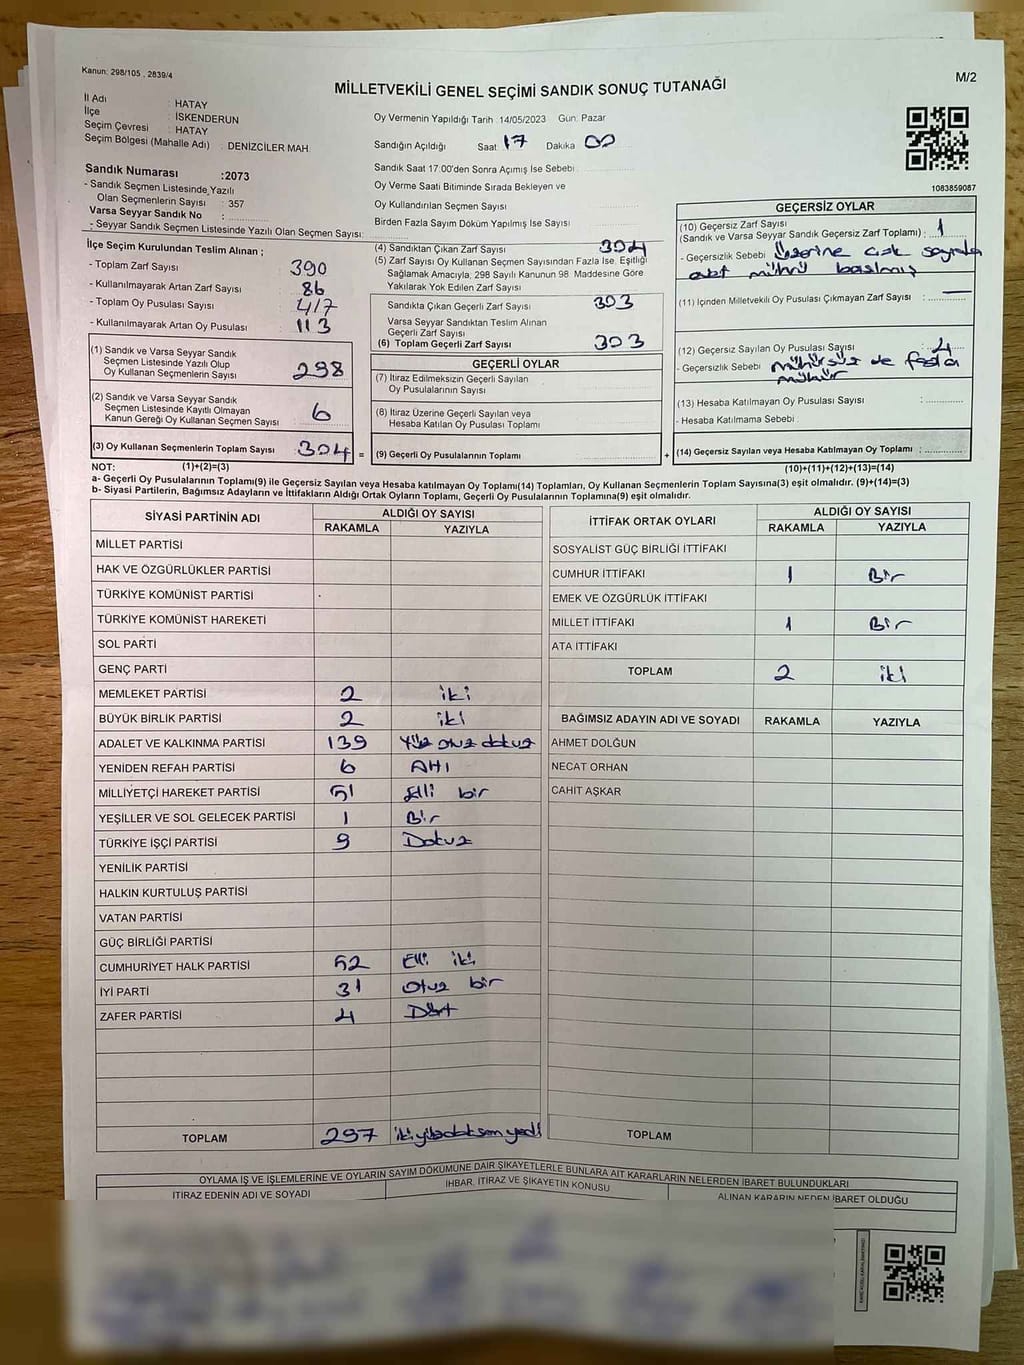 Kanun: 298/105 , 2839/4
M/2
MİLLETVEKİLİ GENEL SEÇİMİ SANDIK SONUÇ TUTANAĞI
İl Adı : HATAY
İlçe : İSKENDERUN
Seçim Çevresi : HATAY
Seçim Bölgesi (Mahalle Adı) : DENİZCİLER MAH.
Oy Vermenin Yapıldığı Tarih 14/05/2023 Gün: Pazar
Sandığın Açıldığı Saat 17 Dakika 00
Sandık Saat 17:00'den Sonra Açımış İse Sebebi
Oy Verme Saati Bitiminde Sırada Bekleyen ve
Oy Kullandırılan Seçmen Sayısı
Birden Fazla Sayım Döküm Yapılmış İse Sayısı
Sandık Numarası :2073
- Sandık Seçmen Listesinde Yazılı
Olan Seçmenlerin Sayısı : 357
Varsa Seyyar Sandık No :
- Seyyar Sandık Seçmen Listesinde Yazılı Olan Seçmen Sayısı:
1083859087
İlçe Seçim Kurulundan Teslim Alınan ;
- Toplam Zarf Sayısı : 390
- Kullanılmayarak Artan Zarf Sayısı : 86
- Toplam Oy Pusulası Sayısı : 417
- Kullanılmayarak Artan Oy Pusulası : 113
(1) Sandık ve Varsa Seyyar Sandık
Seçmen Listesinde Yazılı Olup
Oy Kullanan Seçmenlerin Sayısı : 298
(2) Sandık ve Varsa Seyyar Sandık
Seçmen Listesinde Kayıtlı Olmayan
Kanun Gereği Oy Kullanan Seçmen Sayısı : 6
(3) Oy Kullanan Seçmenlerin Toplam Sayısı : 304 =
(4) Sandıktan Çıkan Zarf Sayısı 304
(5) Zarf Sayısı Oy Kullanan Seçmen Sayısından Fazla İse, Eşitliği
Sağlamak Amacıyla, 298 Sayılı Kanunun 98. Maddesine Göre
Yakılarak Yok Edilen Zarf Sayısı
Sandıkta Çıkan Geçerli Zarf Sayısı 303
Varsa Seyyar Sandıktan Teslim Alınan
Geçerli Zarf Sayısı
(6) Toplam Geçerli Zarf Sayısı : 303
GEÇERLİ OYLAR
(7) İtiraz Edilmeksizin Geçerli Sayılan
Oy Pusulalarının Sayısı
(8) İtiraz Üzerine Geçerli Sayılan veya
Hesaba Katılan Oy Pusulası Toplamı
(9) Geçerli Oy Pusulalarının Toplamı +
GEÇERSİZ OYLAR
(10) Geçersiz Zarf Sayısı
(Sandık ve Varsa Seyyar Sandık Geçersiz Zarf Toplamı) : 1
- Geçersizlik Sebebi üzerine çok sayıda
mührü basılmış
(11) İçinden Milletvekili Oy Pusulası Çıkmayan Zarf Sayısı : —
(12) Geçersiz Sayılan Oy Pusulası Sayısı : 4
- Geçersizlik Sebebi mühürsüz de fazla
mühür
(13) Hesaba Katılmayan Oy Pusulası Sayısı :
- Hesaba Katılmama Sebebi :
(14) Geçersiz Sayılan veya Hesaba Katılmayan Oy Toplamı :
NOT: (1)+(2)=(3)
(10)+(11)+(12)+(13)=(14)
a- Geçerli Oy Pusulalarının Toplamı(9) ile Geçersiz Sayılan veya Hesaba katılmayan Oy Toplamı(14) Toplamları, Oy Kullanan Seçmenlerin Toplam Sayısına(3) eşit olmalıdır. (9)+(14)=(3)
b- Siyasi Partilerin, Bağımsız Adayların ve İttifakların Aldığı Ortak Oyların Toplamı, Geçerli Oy Pusulalarının Toplamına(9) eşit olmalıdır.
SİYASİ PARTİNİN ADI ALDIĞI OY SAYISI
RAKAMLA YAZIYLA
MİLLET PARTİSİ
HAK VE ÖZGÜRLÜKLER PARTİSİ
TÜRKİYE KOMÜNİST PARTİSİ
TÜRKİYE KOMÜNİST HAREKETİ
SOL PARTİ
GENÇ PARTİ
MEMLEKET PARTİSİ 2 iki
BÜYÜK BİRLİK PARTİSİ 2 iki
ADALET VE KALKINMA PARTİSİ 139 Yüz otuz dokuz
YENİDEN REFAH PARTİSİ 6 Altı
MİLLİYETÇİ HAREKET PARTİSİ 51 Elli bir
YEŞİLLER VE SOL GELECEK PARTİSİ 1 Bir
TÜRKİYE İŞÇİ PARTİSİ 9 Dokuz
YENİLİK PARTİSİ
HALKIN KURTULUŞ PARTİSİ
VATAN PARTİSİ
GÜÇ BİRLİĞİ PARTİSİ
CUMHURİYET HALK PARTİSİ 52 Elli iki
İYİ PARTİ 31 Otuz bir
ZAFER PARTİSİ 4 Dört
TOPLAM 297 iki yüz doksan yedi
İTTİFAK ORTAK OYLARI ALDIĞI OY SAYISI
RAKAMLA YAZIYLA
SOSYALİST GÜÇ BİRLİĞİ İTTİFAKI
CUMHUR İTTİFAKI 1 Bir
EMEK VE ÖZGÜRLÜK İTTİFAKI
MİLLET İTTİFAKI 1 Bir
ATA İTTİFAKI
TOPLAM 2 iki
BAĞIMSIZ ADAYIN ADI VE SOYADI RAKAMLA YAZIYLA
AHMET DOLĞUN
NECAT ORHAN
CAHİT AŞKAR
TOPLAM
OYLAMA İŞ VE İŞLEMLERİNE VE OYLARIN SAYIM DÖKÜMÜNE DAİR ŞİKAYETLERLE BUNLARA AİT KARARLARIN NELERDEN İBARET BULUNDUKLARI
İTİRAZ EDENİN ADI VE SOYADI İHBAR, İTİRAZ VE ŞİKAYETİN KONUSU ALINAN KARARIN NEDEN İBARET OLDUĞU